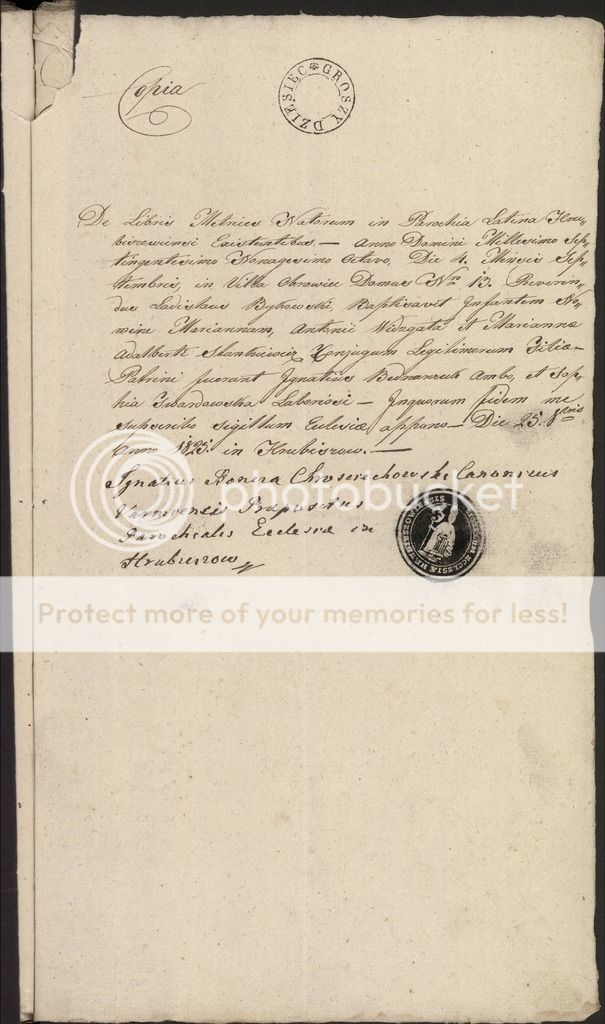 Copia
DZIESIĘC GROSZY
De Libris Metrices Natorum in Parochia Latina Hru-
bieszoviensi Existentibus. — Anno Domini Millesimo Sep-
tingentesimo Nonagesimo Octavo, Die 4. Mensis Sep-
tembris, in Villa Obrowiec Domus Nro 13. Reveren-
dus Ladislaus Bykowski, Baptisavit Infantem No-
mine Mariannam, Antonii et Marianna
Adalberti Stankiewicz Conjugum Legitimorum Filia —
Patrini fuerunt Ignatius Bednarczuk Ambo, et Sop-
hia Gwardowska Laboriosi — Inquorum fidem me
subscribo Sigillum Eclesiæ appono — Die 25. 8bris
Anno 1825. in Hrubieszow. —
Ignatius Bonina Canonicus
Præpositus
Parochialis Ecclesiæ in
Hrubieszow
photobucket
Protect more of your memories for less!